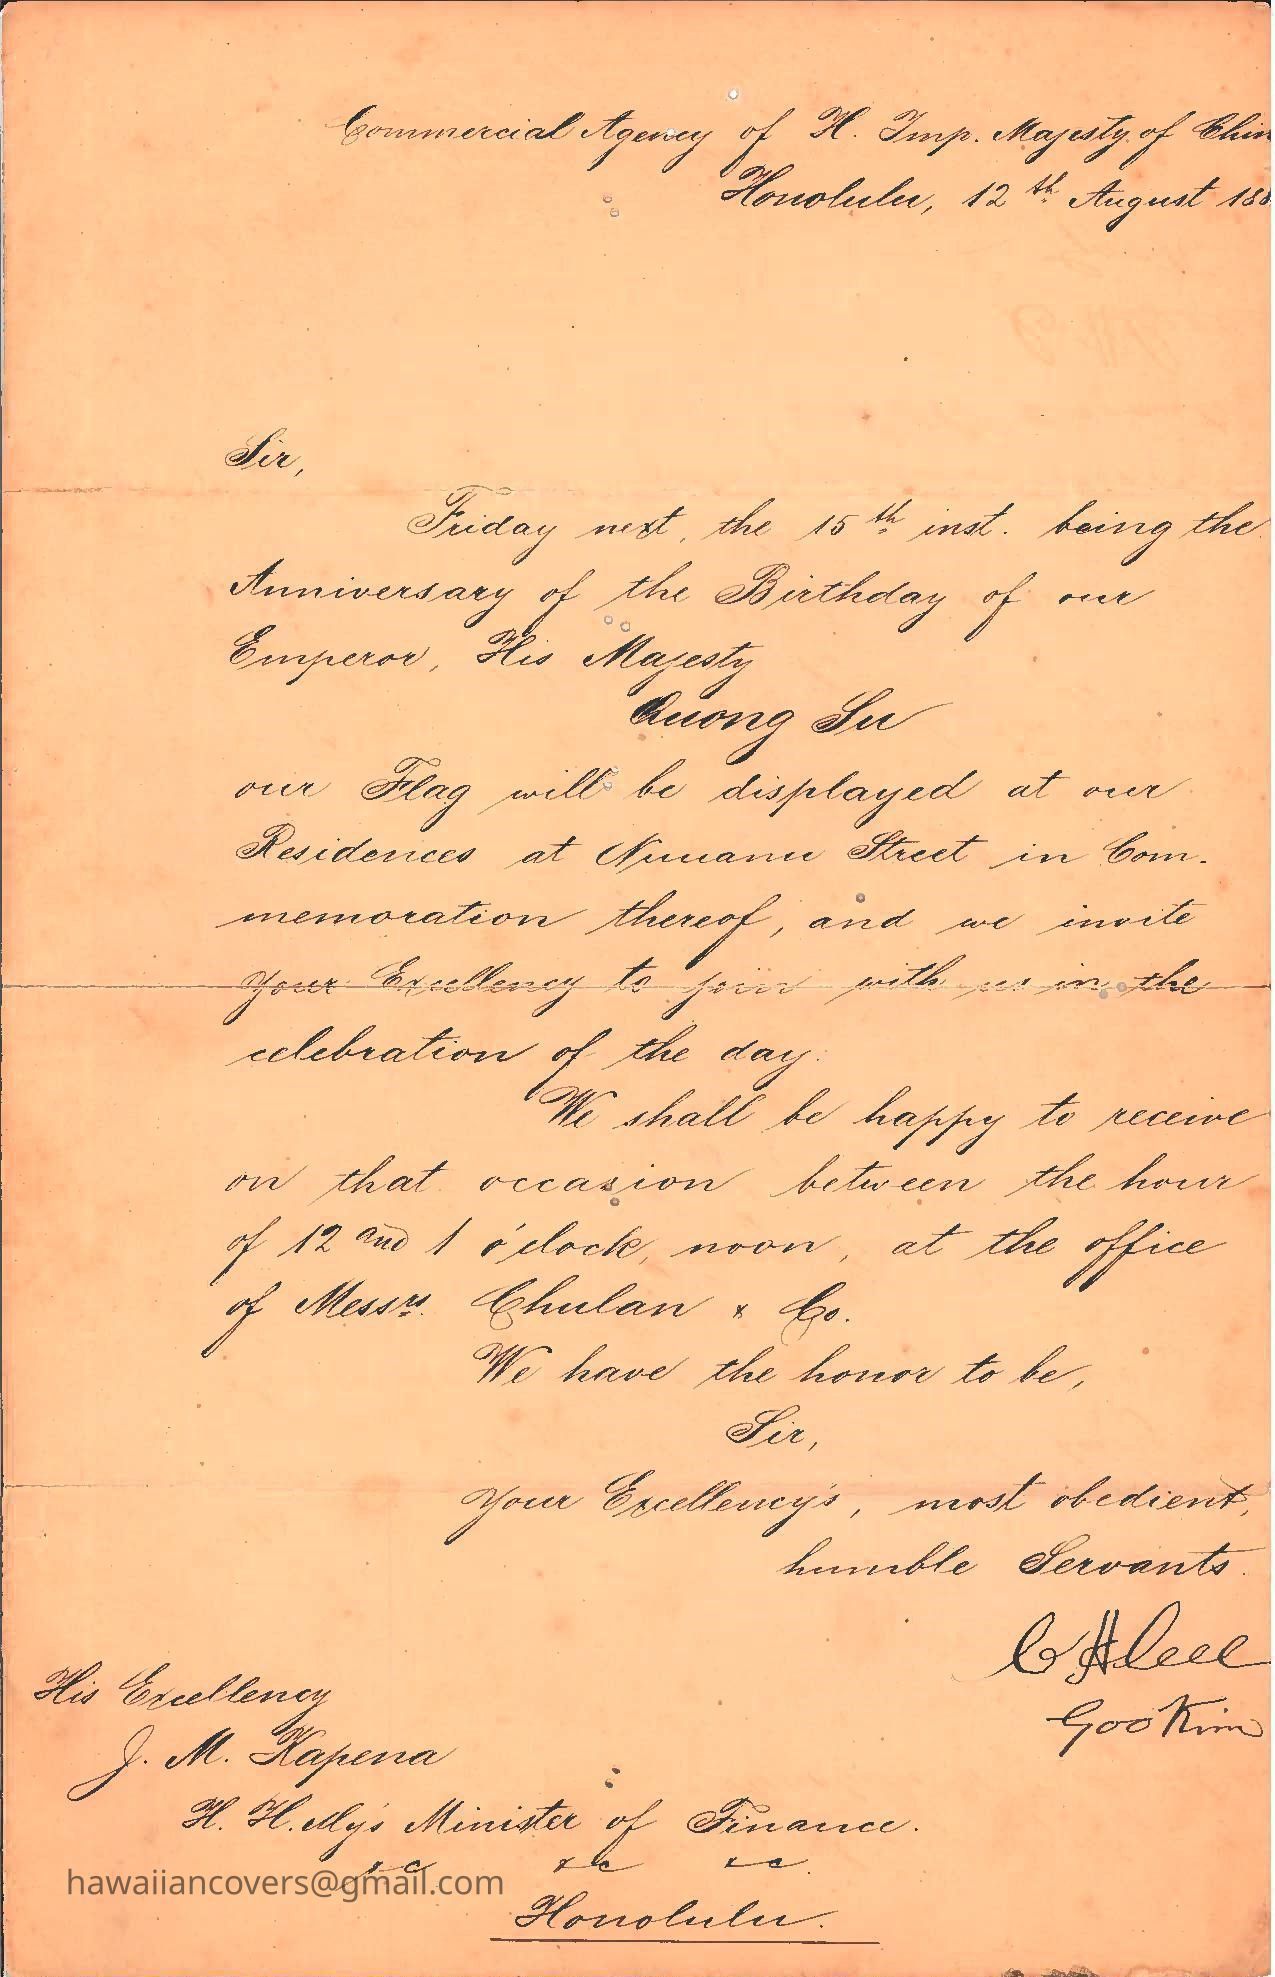 Commercial Agency of H. Imp. Majesty of Chin
Honolulu, 12th August 188
Sir,
Friday next, the 15th inst. being the
Anniversary of the Birthday of our
Emperor, His Majesty
Quong Su
our Flag will be displayed at our
Residences at Nuuanu Street in Com-
memoration thereof, and we invite
Your Excellency to join with us in the
celebration of the day.
We shall be happy to receive
on that occasion between the hour
of 12 and 1 o'clock, noon, at the office
of Messrs. Chulan & Co.
We have the honor to be,
Sir,
Your Excellency's, most obedient,
humble Servants.
Goo Kim
His Excellency
J. M. Kapena
H. H. My's Minister of Finance.
&c &c &c.
hawaiiancovers@gmail.com
Honolulu.